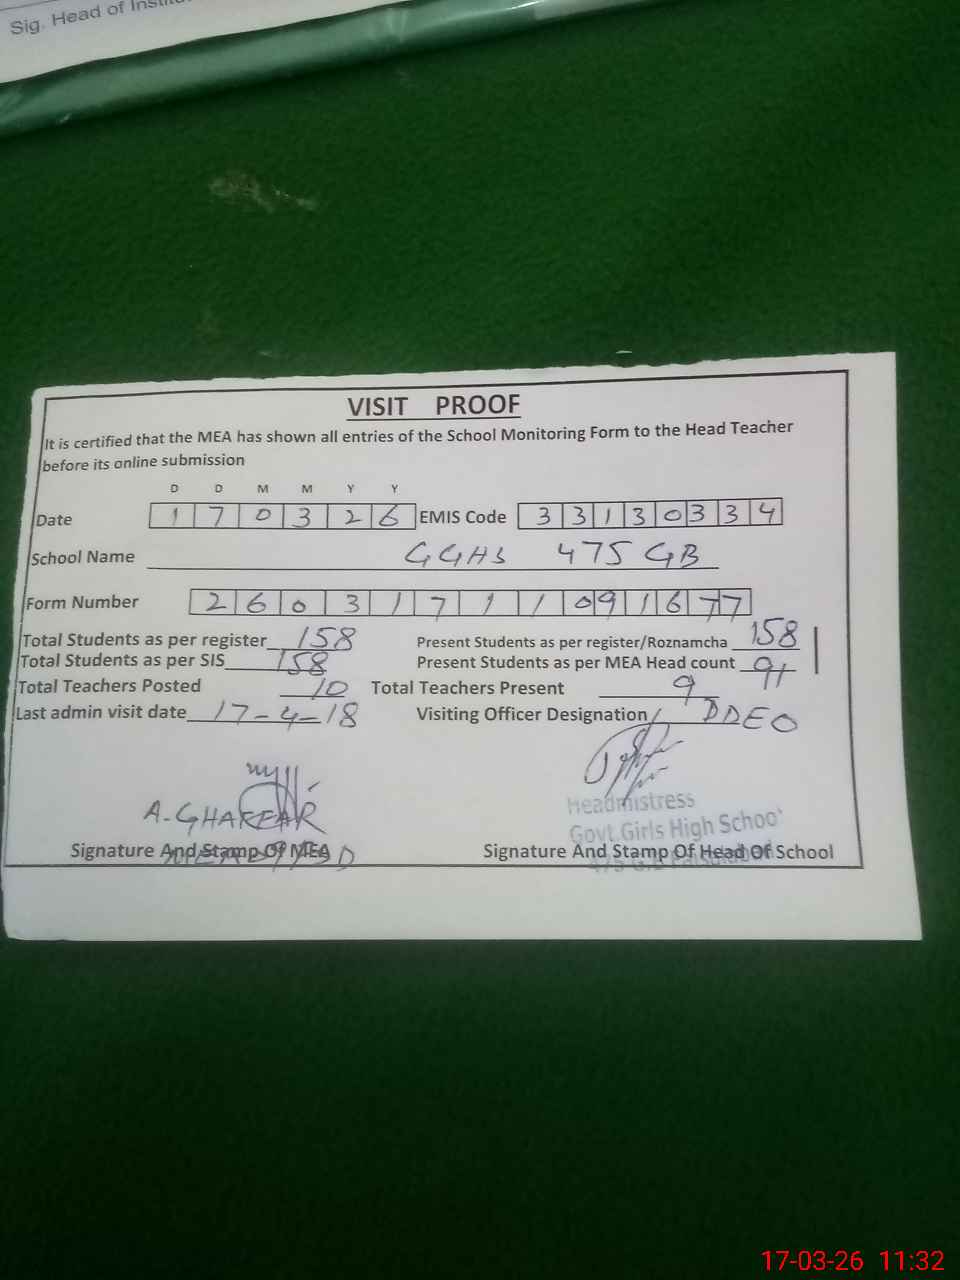 Sig. Head of
VISIT PROOF
It is certified that the MEA has shown all entries of the School Monitoring Form to the Head Teacher
before its online submission
D D M M Y Y
Date 1 7 0 3 2 6 EMIS Code 3 3 1 3 0 3 3 4
School Name GGHS 475 GB
Form Number 2 6 0 3 1 7 1 1 0 9 1 6 7 7
Total Students as per register 158 Present Students as per register/Roznamcha 158
Total Students as per SIS 158 Present Students as per MEA Head count 91
Total Teachers Posted 10 Total Teachers Present 9
Last admin visit date 17-4-18 Visiting Officer Designation DDEO
A. GHAFFAR
Headmistress
Govt. Girls High School
Signature And Stamp Of MEA Signature And Stamp Of Head Of School
17-03-26 11:32